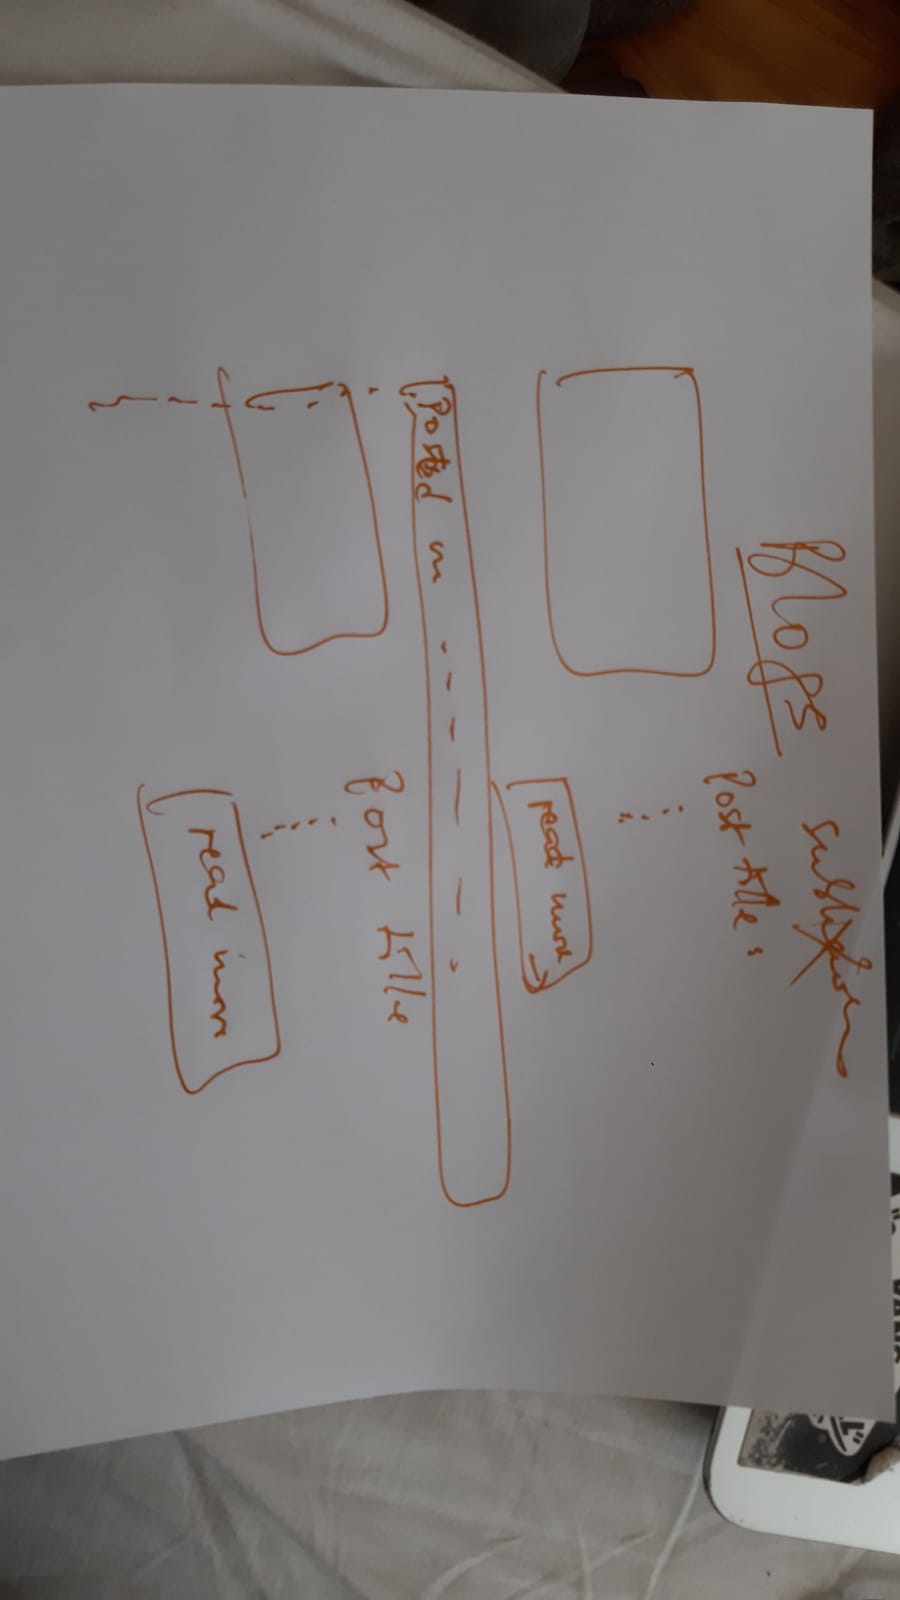 Blogs
Post title :
read more
Posted on
Post title
read more